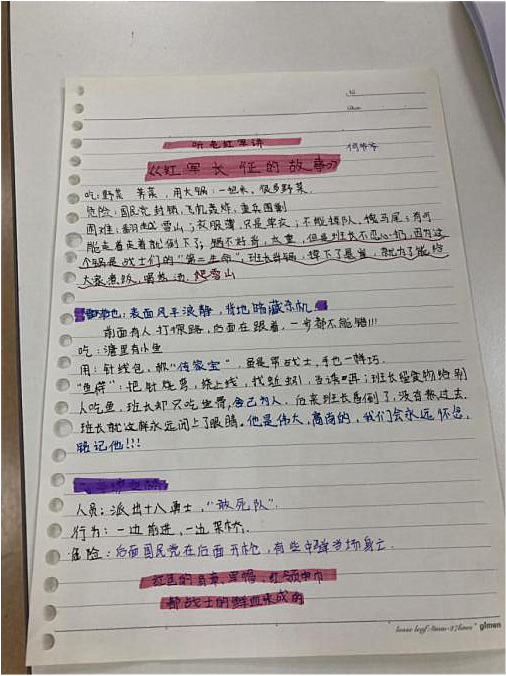 No.
Date
听老红军讲
《红军长征的故事》
何爷爷
吃:野菜 草菜,用大锅:一起来,很多野菜.
危险:国民党封锁,飞机轰炸,重兵围剿
困难:翻越雪山;衣服薄,只是单衣;不能掉队,拽马尾;有可
能走着走着就倒下了;锅不好背,太重,但是班长不忍心扔,因为这
个锅是战士们的“第二生命”;班长背锅,掉下了悬崖,就为了能给
大家煮饭,喝热汤,爬雪山
草地:表面风平浪静,背地暗藏杀机.
前面有人打探路,后面在跟着,一步都不能错!!!
吃:潭里有小鱼
用:针线包,称“传家宝”,虽是男战士,手也一样巧.
“鱼荷”:把针烧弯,绕上线,找蚯蚓,当诱饵;班长经食物给别
人吃鱼,班长却只吃鱼骨,舍己为人,后来班长病倒了,没有熬过去.
班长就这样永远闭上了眼睛,他是伟大,高尚的,我们会永远怀念,
铭记他!!!
人员:派出十八勇士,“敢死队”.
行为:一边前进,一边架桥.
危险:后面国民党在后面开枪,有些中弹当场身亡.
红色的肩章,军帽,红领巾
都战士的鲜血染成的
loose leaf:8mm×27lines glmen